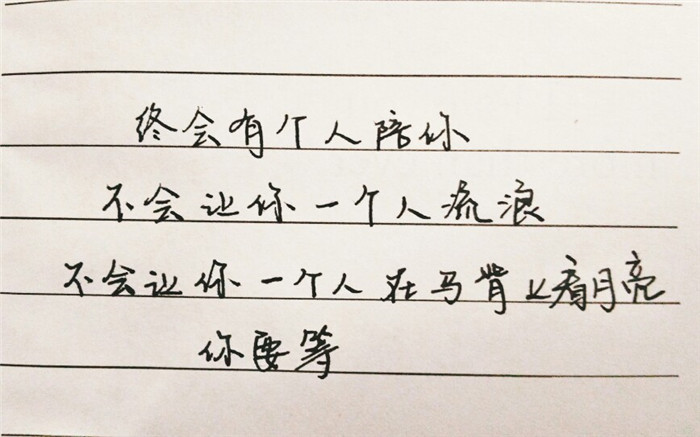 终会有个人陪你
不会让你一个人流浪
不会让你一个人在马背上看月亮
你要等